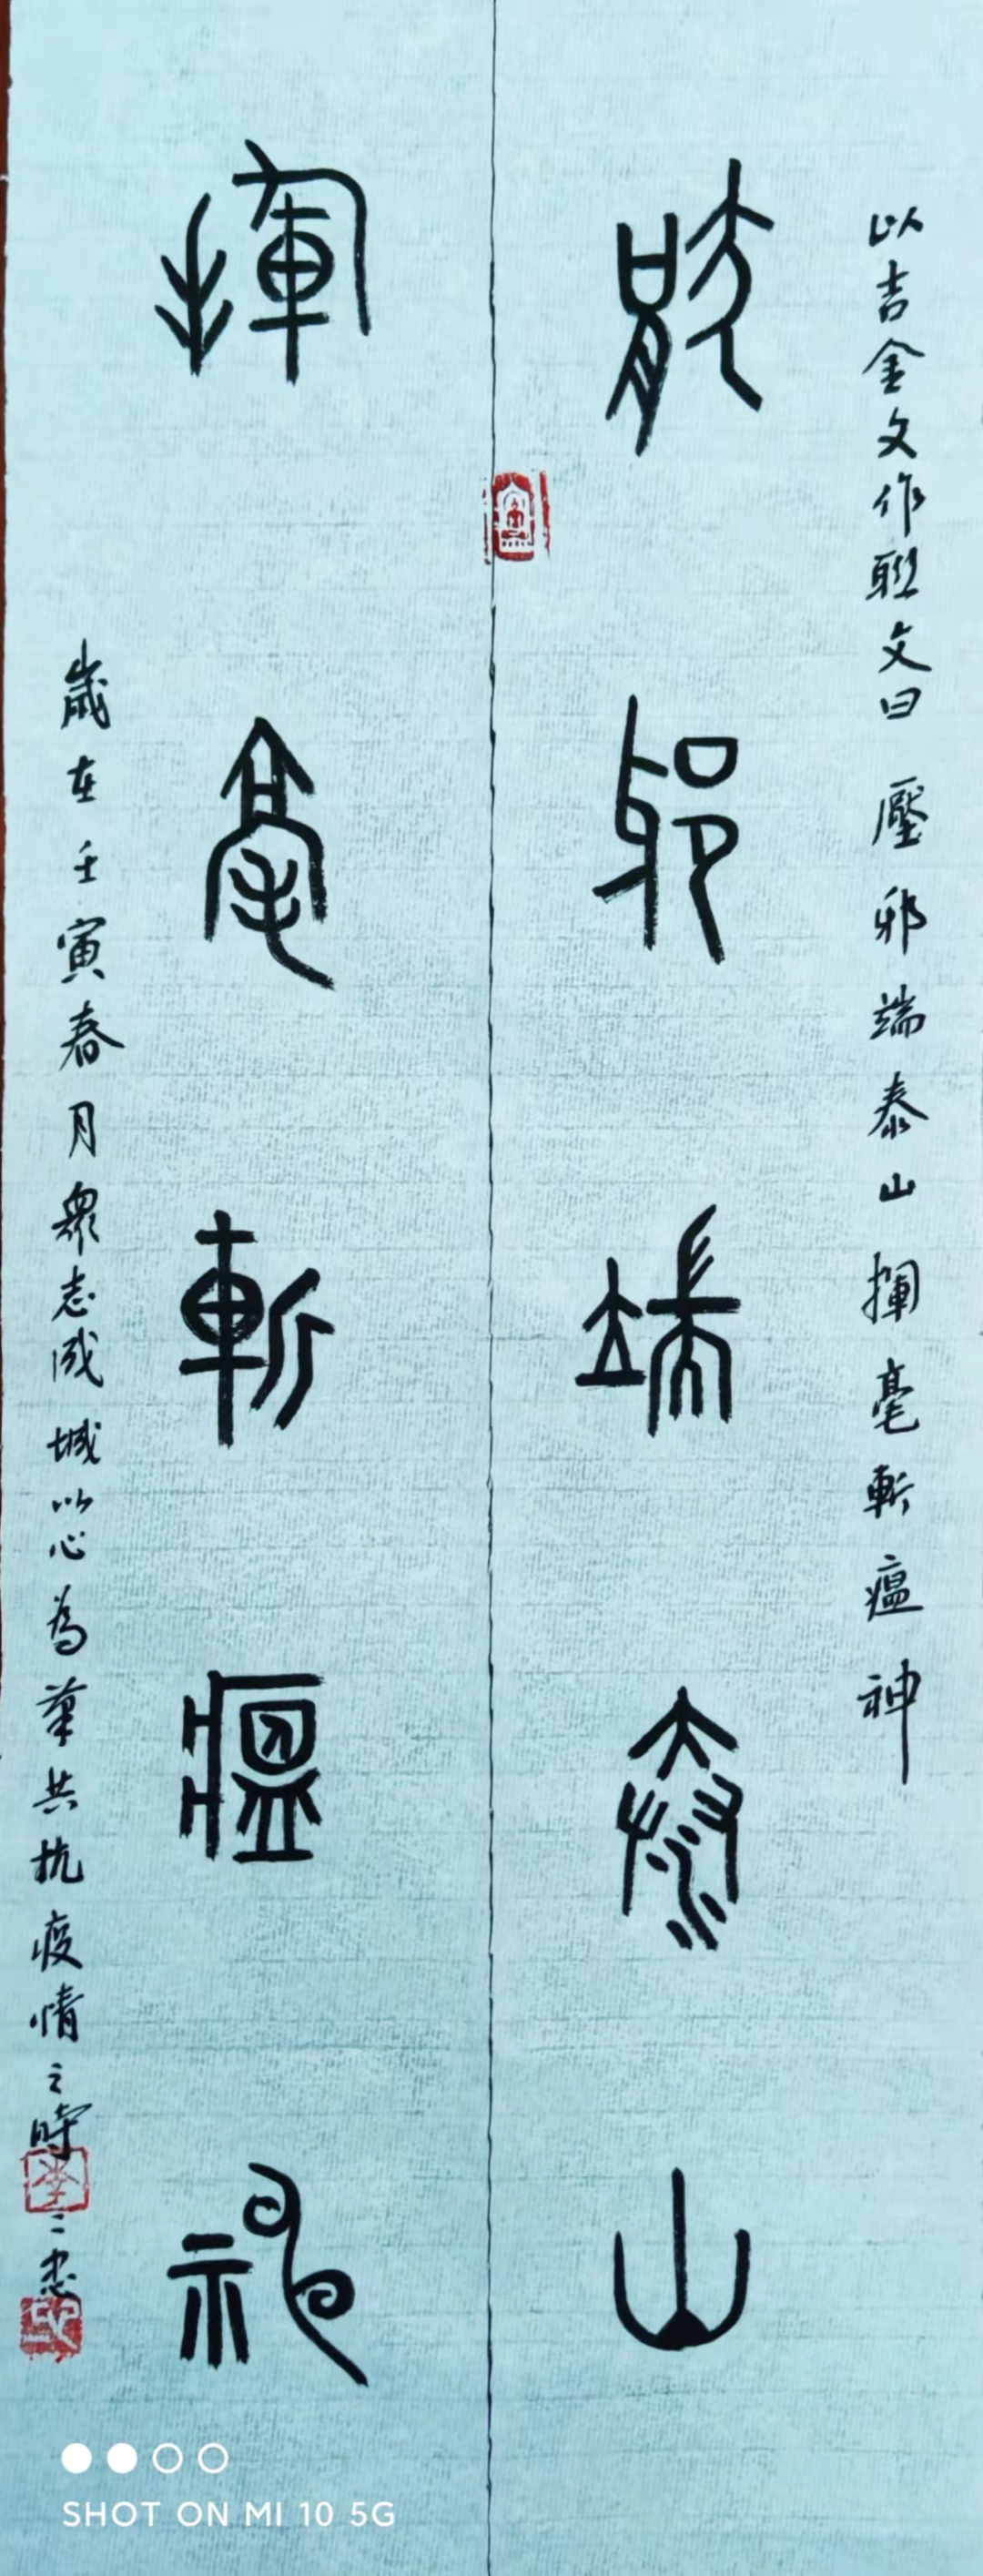 以吉金文作聯文曰 壓邪端泰山 揮毫斬瘟神
壓邪端泰山
揮毫斬瘟神
歲在壬寅春月眾志成城以心為筆共抗疫情之時 三忠
SHOT ON MI 10 5G